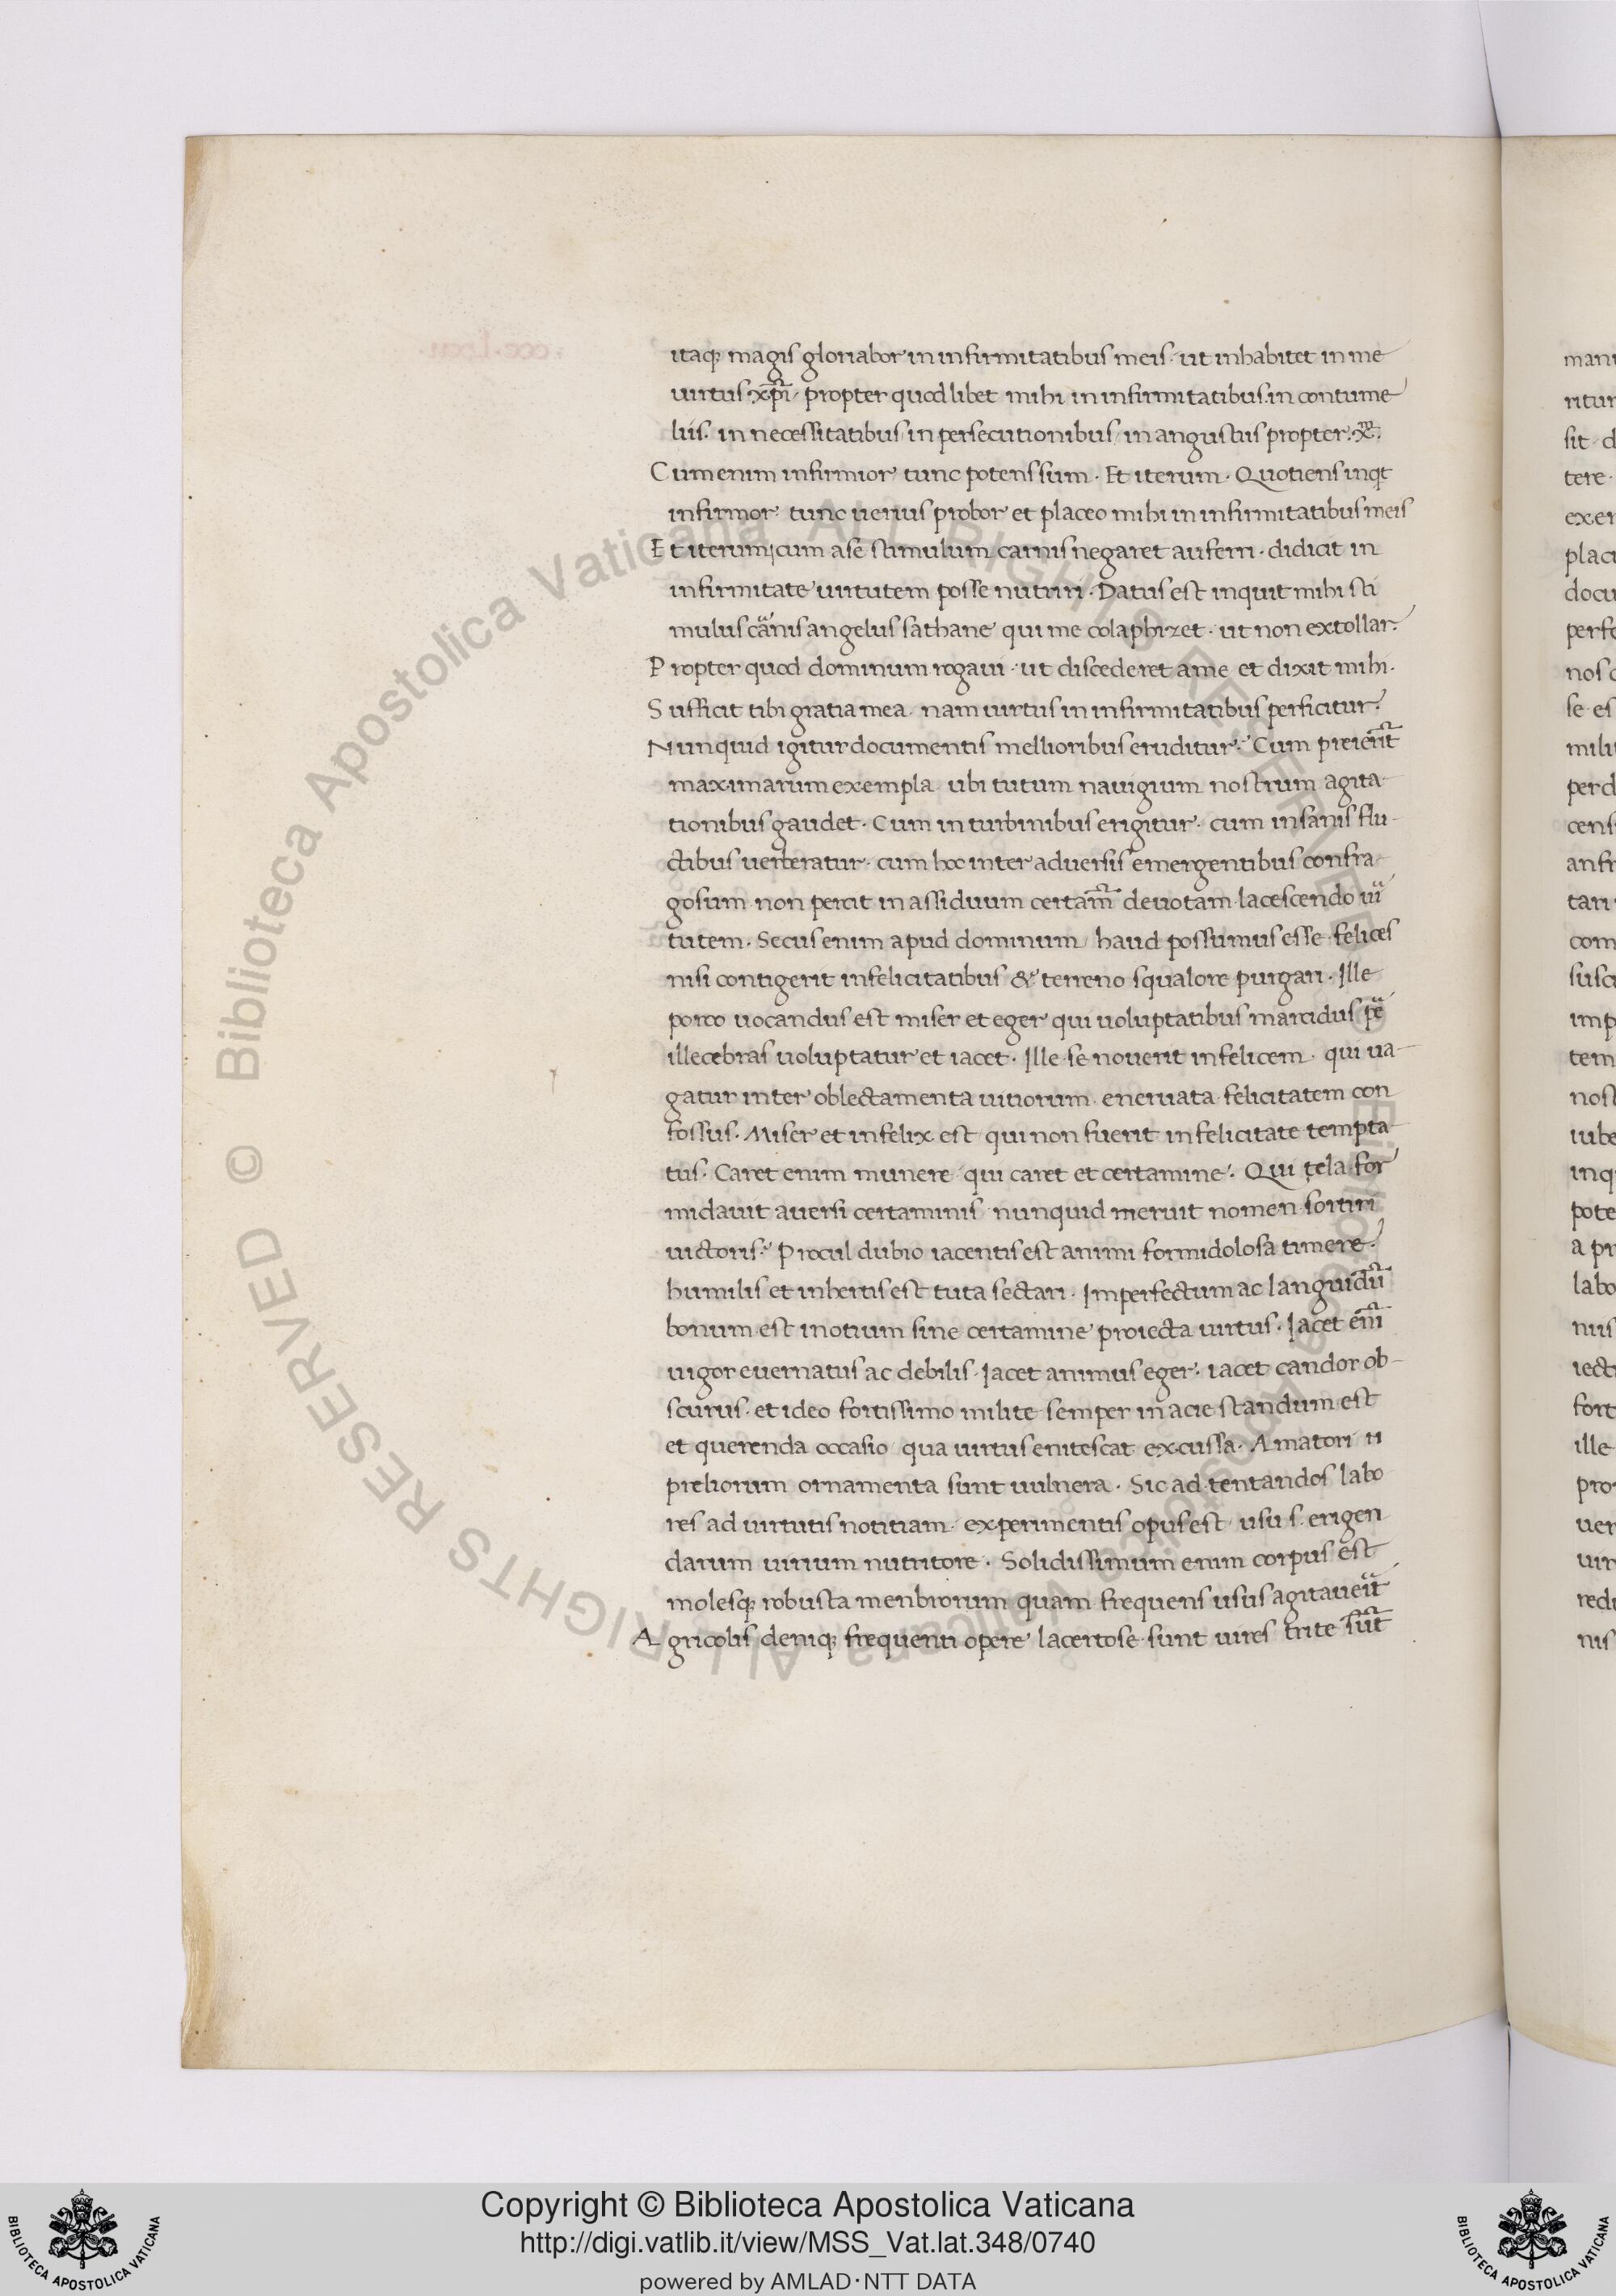 itaq; magis gloriabor in infirmitatibus meis. ut inhabitet in me
uirtus xp̄i. propter quod libet mihi in infirmitatibus. in contume
liis. in necessitatibus in persecutionibus in angustiis propter
Cum enim infirmior tunc potens sum. Et iterum. Quotiens inqt
infirmor. tunc uerius probor et placeo mihi in infirmitatibus meis
Et iterum cum a se stimulum carnis negaret auferri. didicit in
infirmitate uirtutem posse nutriri. Datus est inquit mihi sti
mulus angelus sathane qui me colaphizet. ut non extollar.
Propter quod dominum rogaui. ut discederet a me et dixit mihi.
Sufficit tibi gratia mea. nam uirtus in infirmitatibus perficitur.
Nunquid igitur documentis mellioribus eruditur. Cum
maximarum exempla ubi tutum nauigium nostrum agita
tionibus gaudet. Cum in turbinibus erigitur. cum insanis flu
ctibus uerberatur. cum hoc inter aduersis emergentibus confra
gosum non perit in assiduum certam̄ deuotam lacescendo ui
tutem. Secus enim apud dominum haud possumus esse felices
nisi contigerit infelicitatibus & terreno squalore purgari. Ille
porco uocandus est miser et eger qui uoluptatibus marcidus
illecebras uoluptatur et iacet. Ille se nouerit infelicem. qui ua
gatur inter oblectamenta uitiorum. eneruata felicitatem con
fossus. Miser et infelix est qui non fuerit infelicitate tempta
tus. Caret enim munere qui caret et certamine. Qui tela for
midauit auersi certaminis nunquid meruit nomen sortiri
uictoris. Procul dubio iacentis est animi formidolosa timere.
humilis et inhertis est tuta sectari. Imperfectum ac languidū
bonum est in otium sine certamine proiecta uirtus. Iacet eni
uigor euernatus ac debilis. Iacet animus eger. iacet candor ob
scurus. et ideo fortissimo milite semper in acie standum est
et querenda occasio qua uirtus enitescat excussa. Amatori
preliorum ornamenta sunt uulnera. Sic ad tentandos labo
res ad uirtutis notitiam experimentis opus est usu s. erigen
darum uirium nutritore. Solidissimum enim corpus est
molesq; robusta menbrorum quam frequens usus agitaueit
Agricolis deniq; frequenti opere lacertose sunt uires trite sūt
Copyright © Biblioteca Apostolica Vaticana
http://digi.vatlib.it/view/MSS_Vat.lat.348/0740
powered by AMLAD·NTT DATA